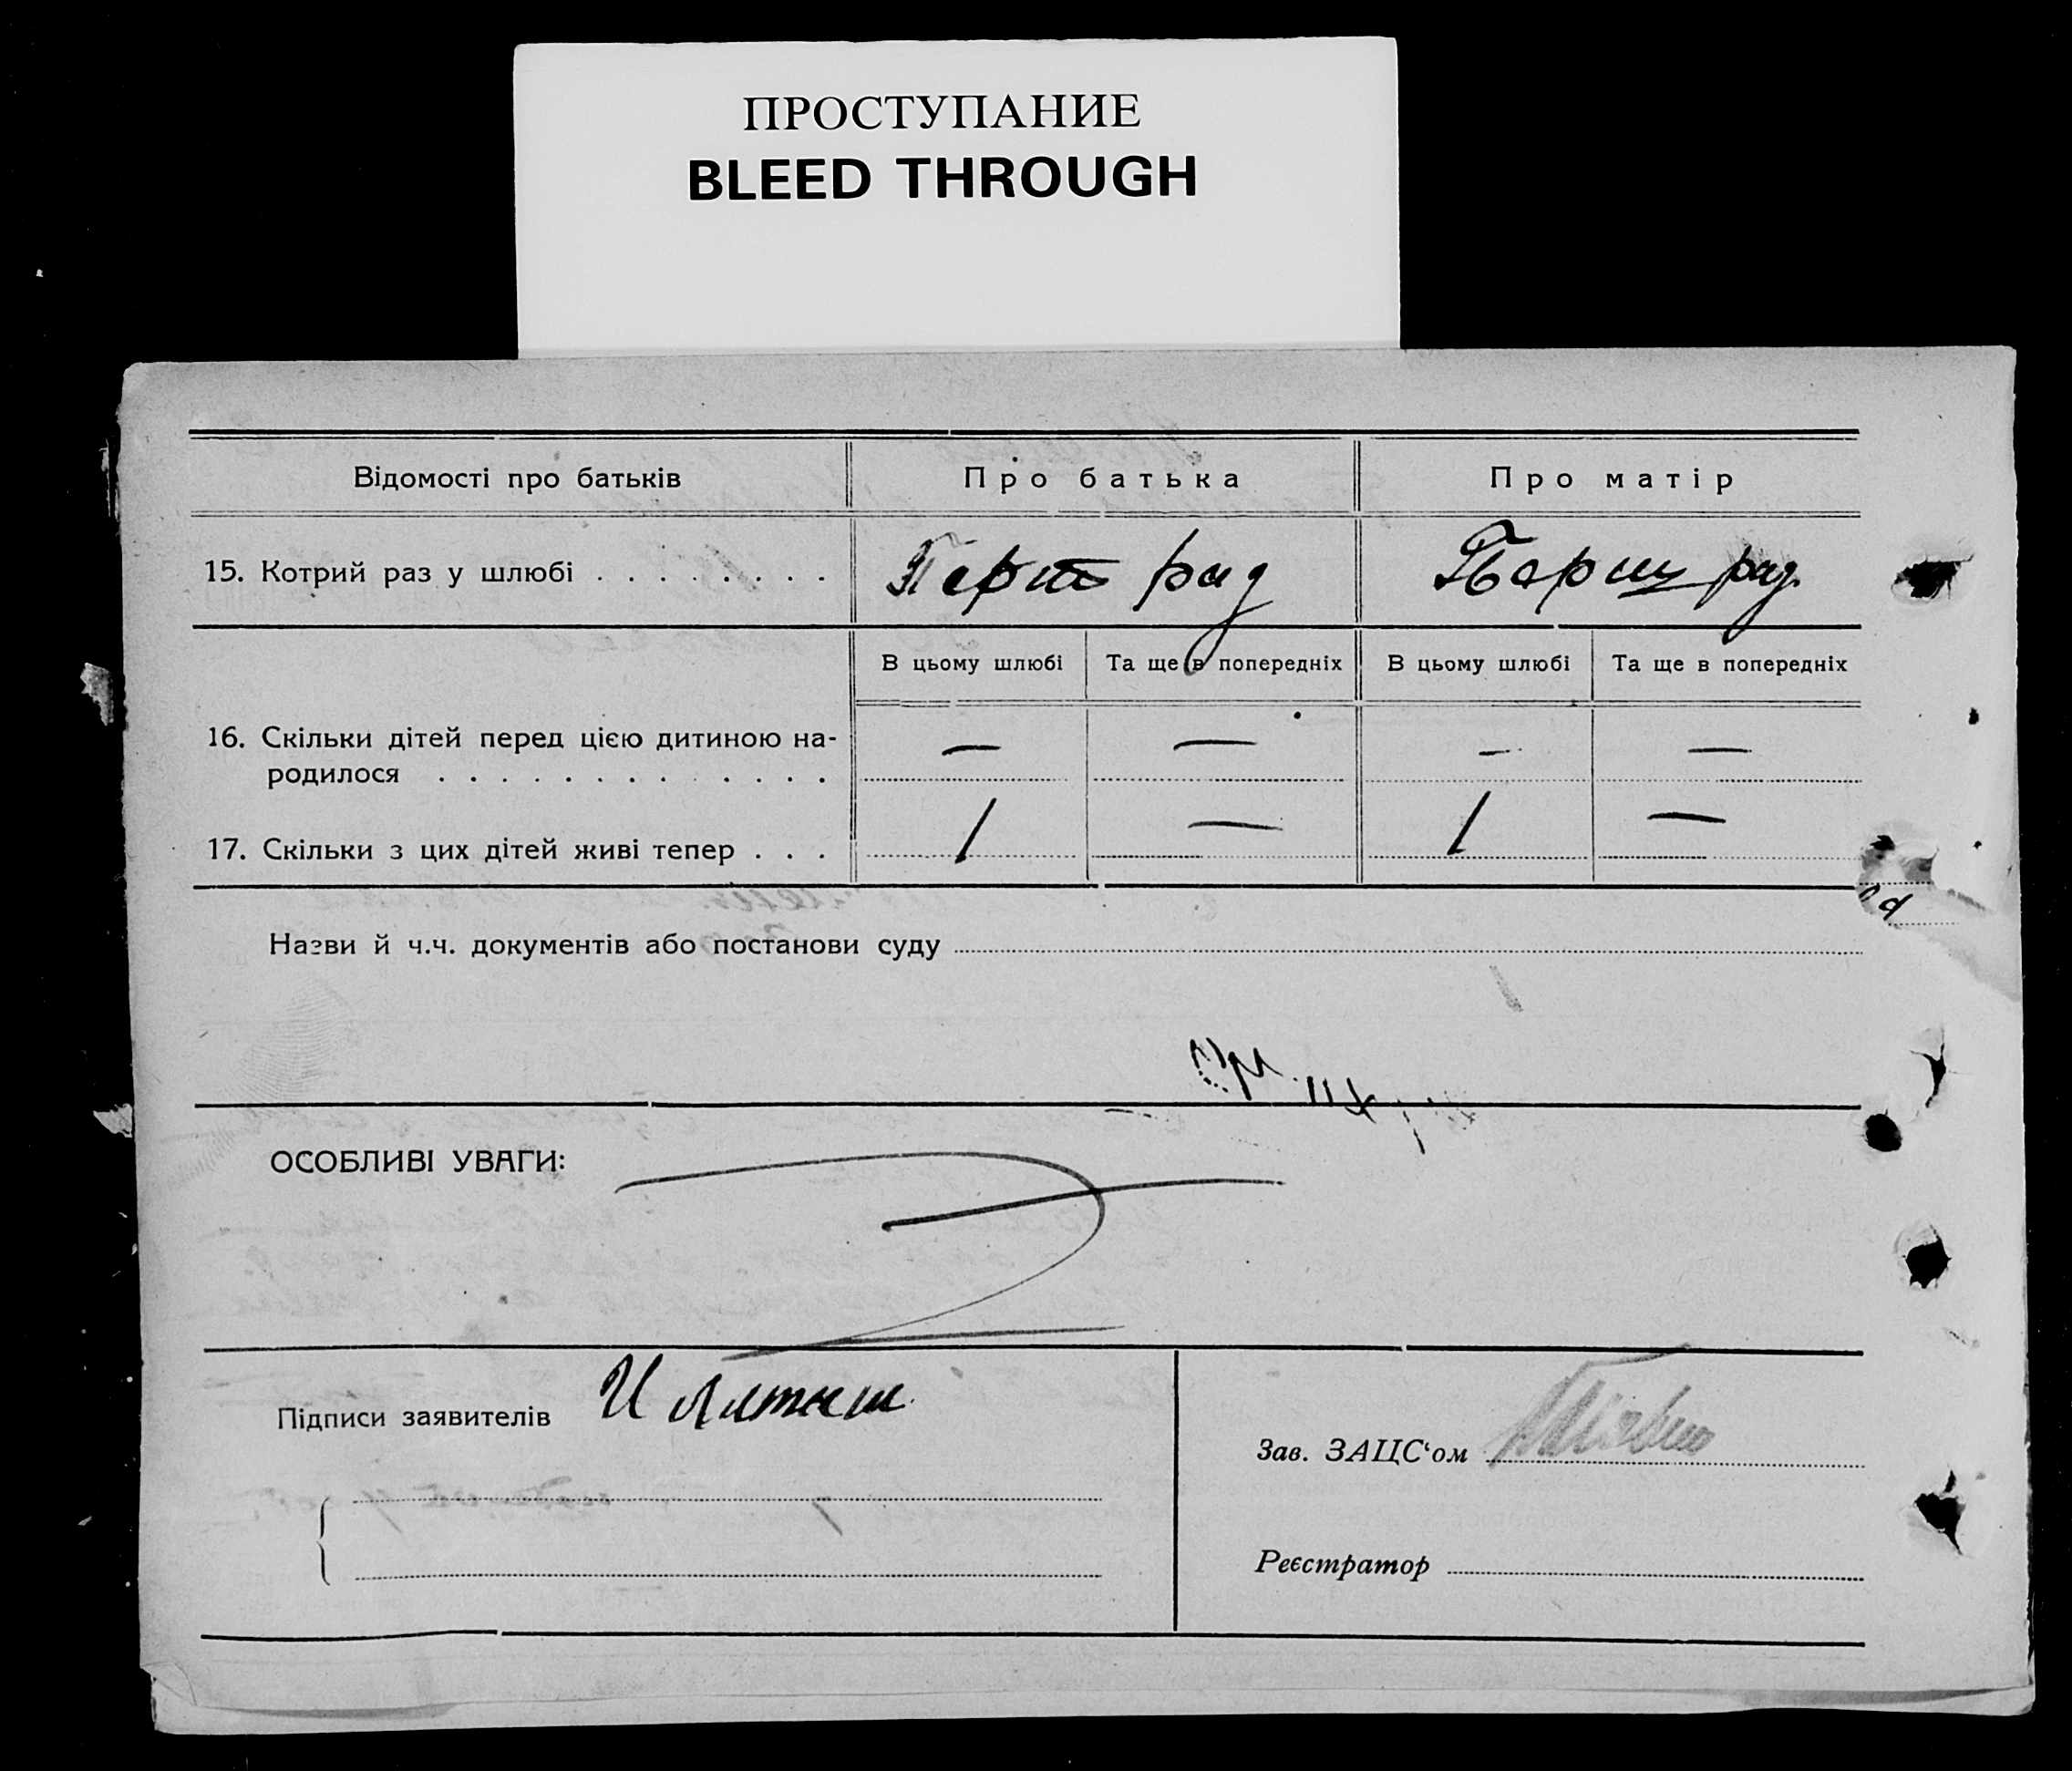 ПРОСТУПАНИЕ
BLEED THROUGH
Відомості про батьків Про батька Про матір
15. Котрий раз у шлюбі . . . . . . . . Перш раз Перш раз
В цьому шлюбі Та ще в попередніх В цьому шлюбі Та ще в попередніх
16. Скільки дітей перед цією дитиною на- — — — —
родилося . . . . . . . . . . . . .
17. Скільки з цих дітей живі тепер . . . 1 — 1 —
Назви й ч.ч. документів або постанови суду
ОСОБЛИВІ УВАГИ:
Підписи заявителів И
Зав. ЗАЦС‘ом
Реєстратор